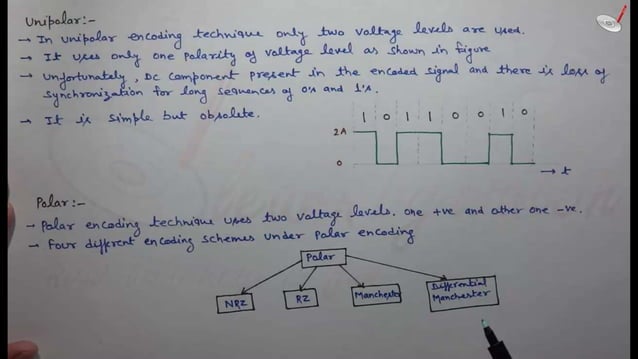 Unipolar:-
→ In unipolar encoding technique only two voltage levels are used.
→ It uses only one polarity of voltage level as shown in figure
→ Unfortunately, DC component present in the encoded signal and there is loss of
synchronization for long sequences of 0's and 1's.
→ It is simple but obsolete.
1 0 1 1 0 0 1 0
2A
0
→ t
Polar:-
→ Polar encoding technique uses two voltage levels. one +ve and other one -ve.
→ Four different encoding schemes under Polar encoding
Polar
NRZ RZ Manchester Differential
Manchester